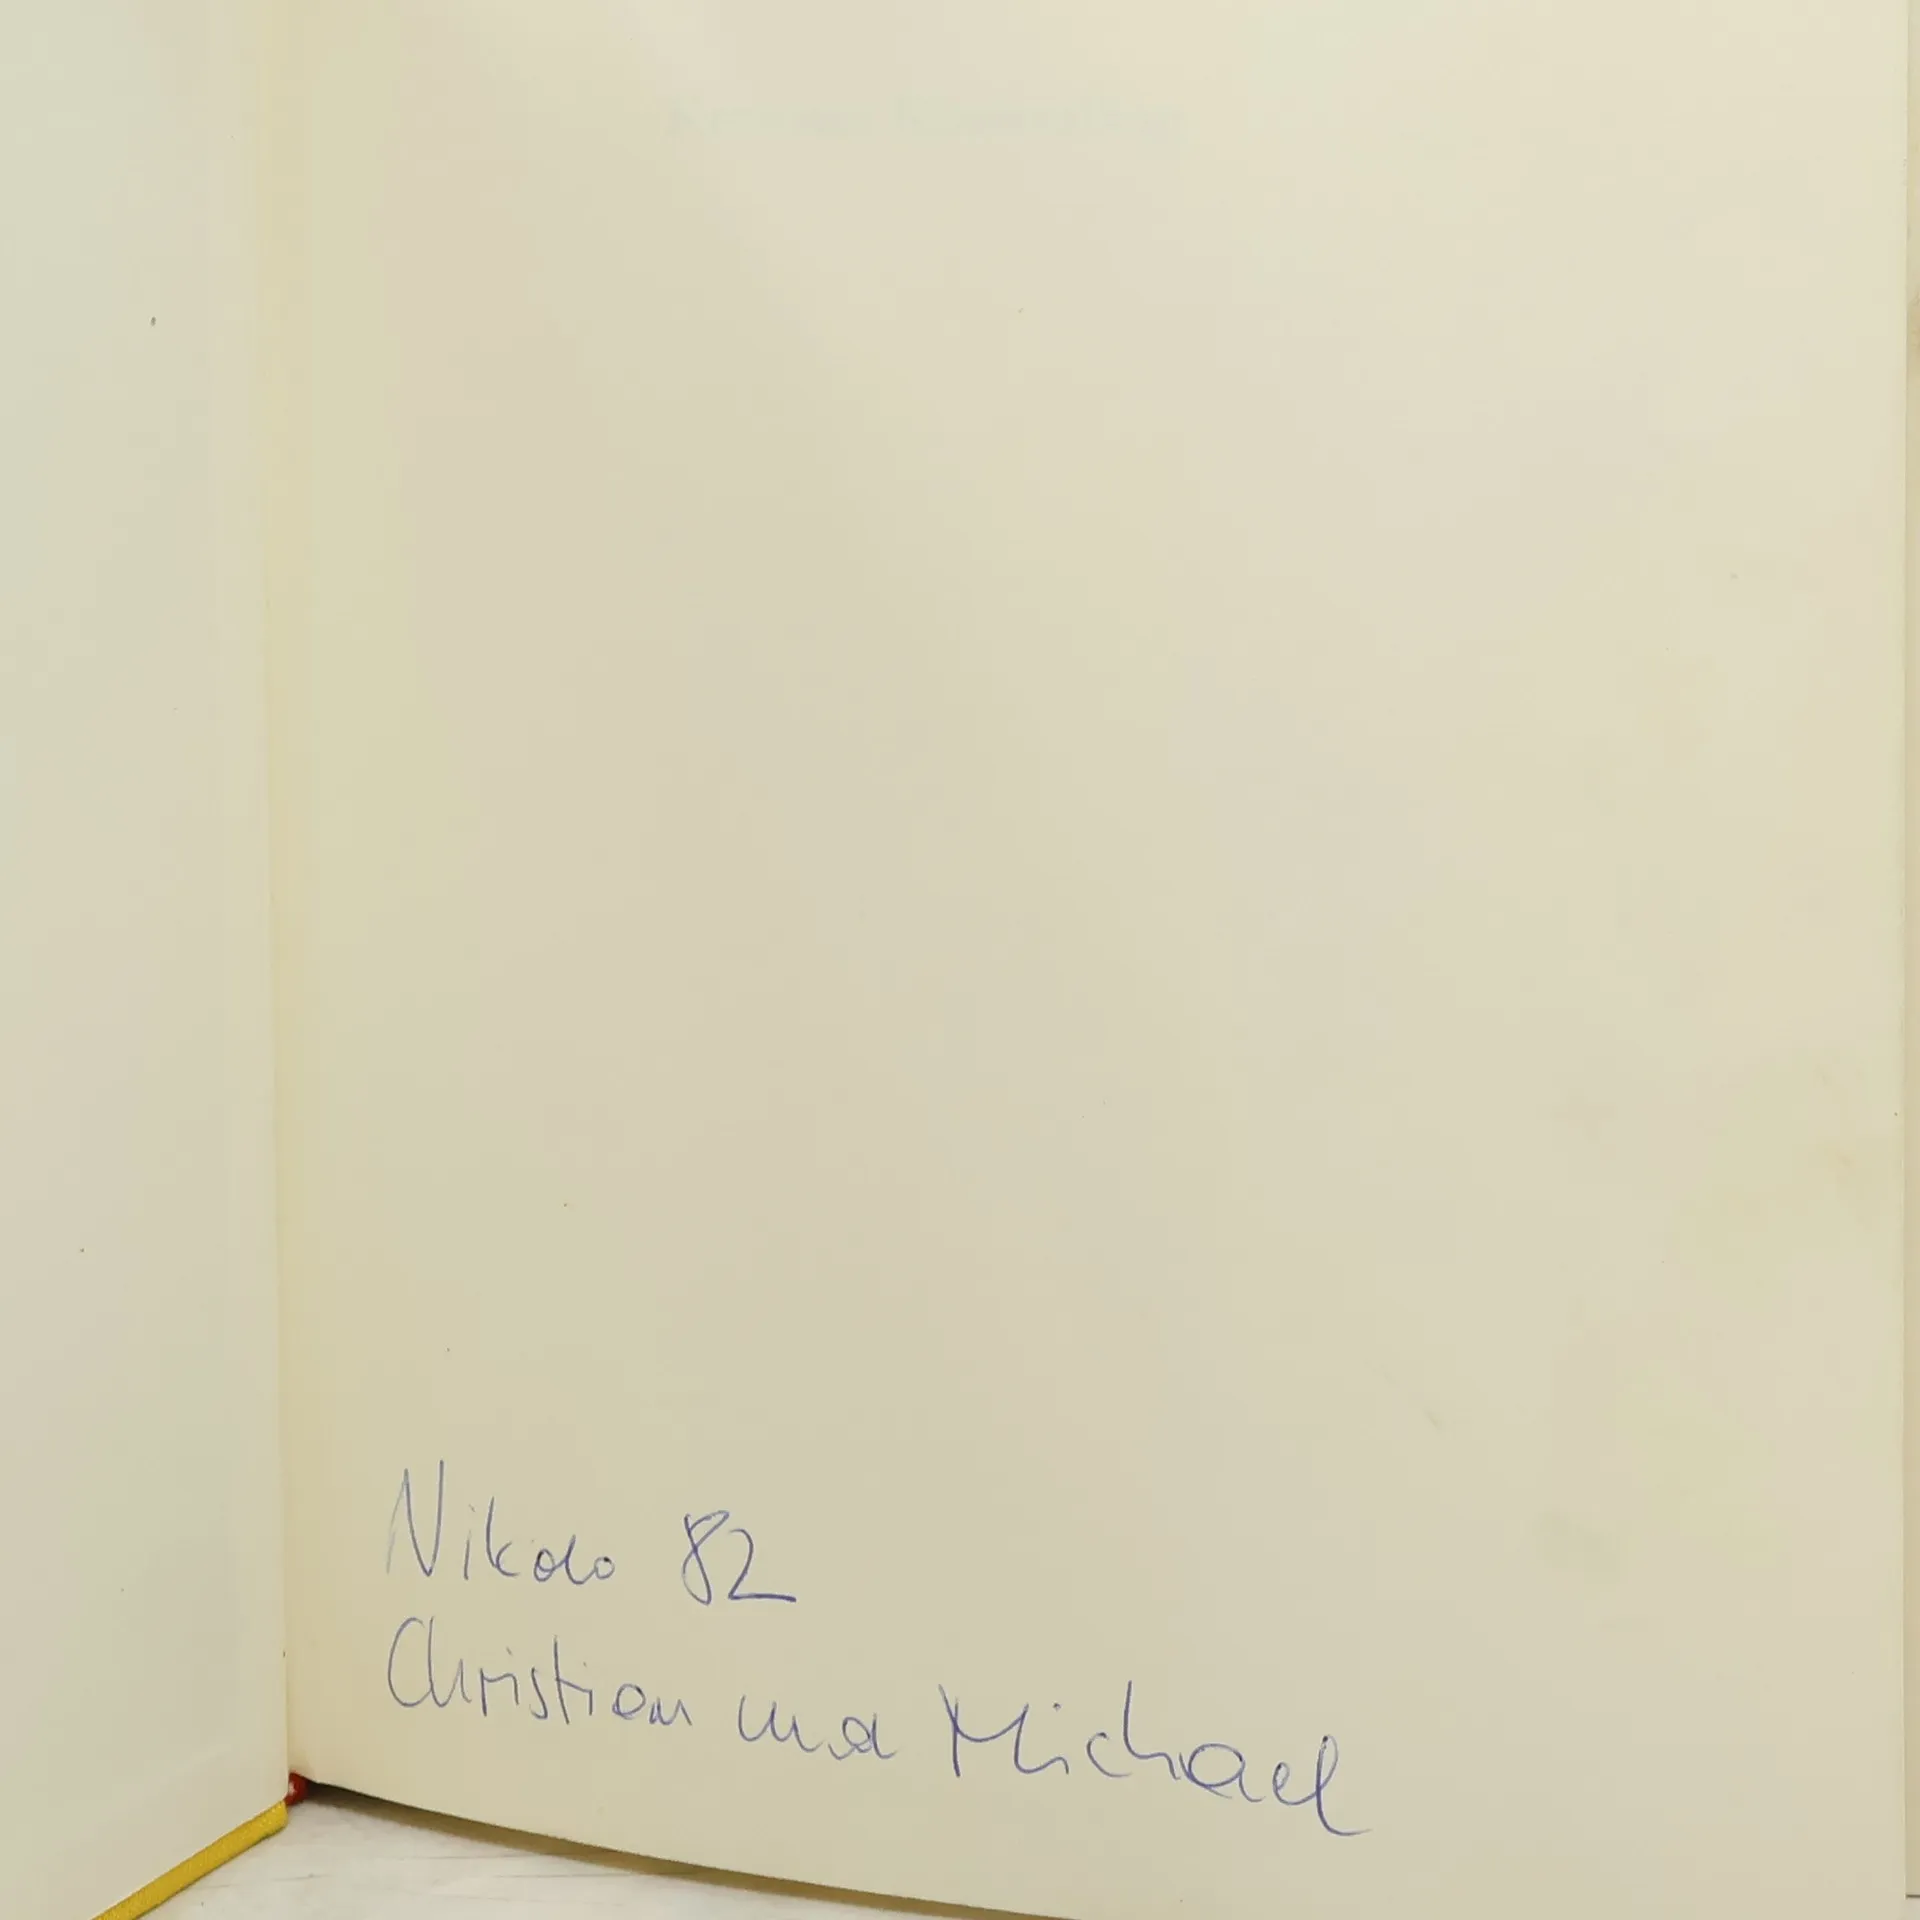 Nikolo 82
Christian und Michael